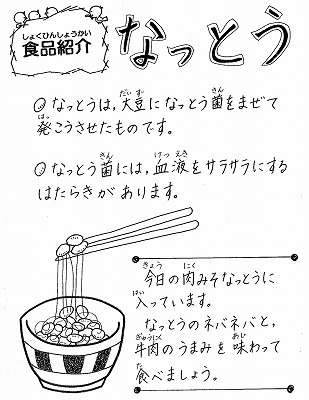 しょくひんしょうかい
食品紹介
なっとう
なっとうは,大豆になっとう菌をまぜて
発こうさせたものです。
なっとう菌には,血液をサラサラにする
はたらきがあります。
今日の肉みそなっとうに
入っています。
なっとうのネバネバと,
牛肉のうまみを味わって
食べましょう。